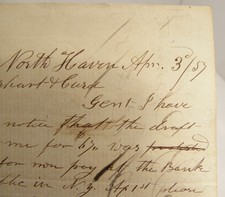 North Haven Apr. 3d/57
Gent. I have
notice that the draft
me for
for non pay at the Bank
in N.Y. Ap 1st please